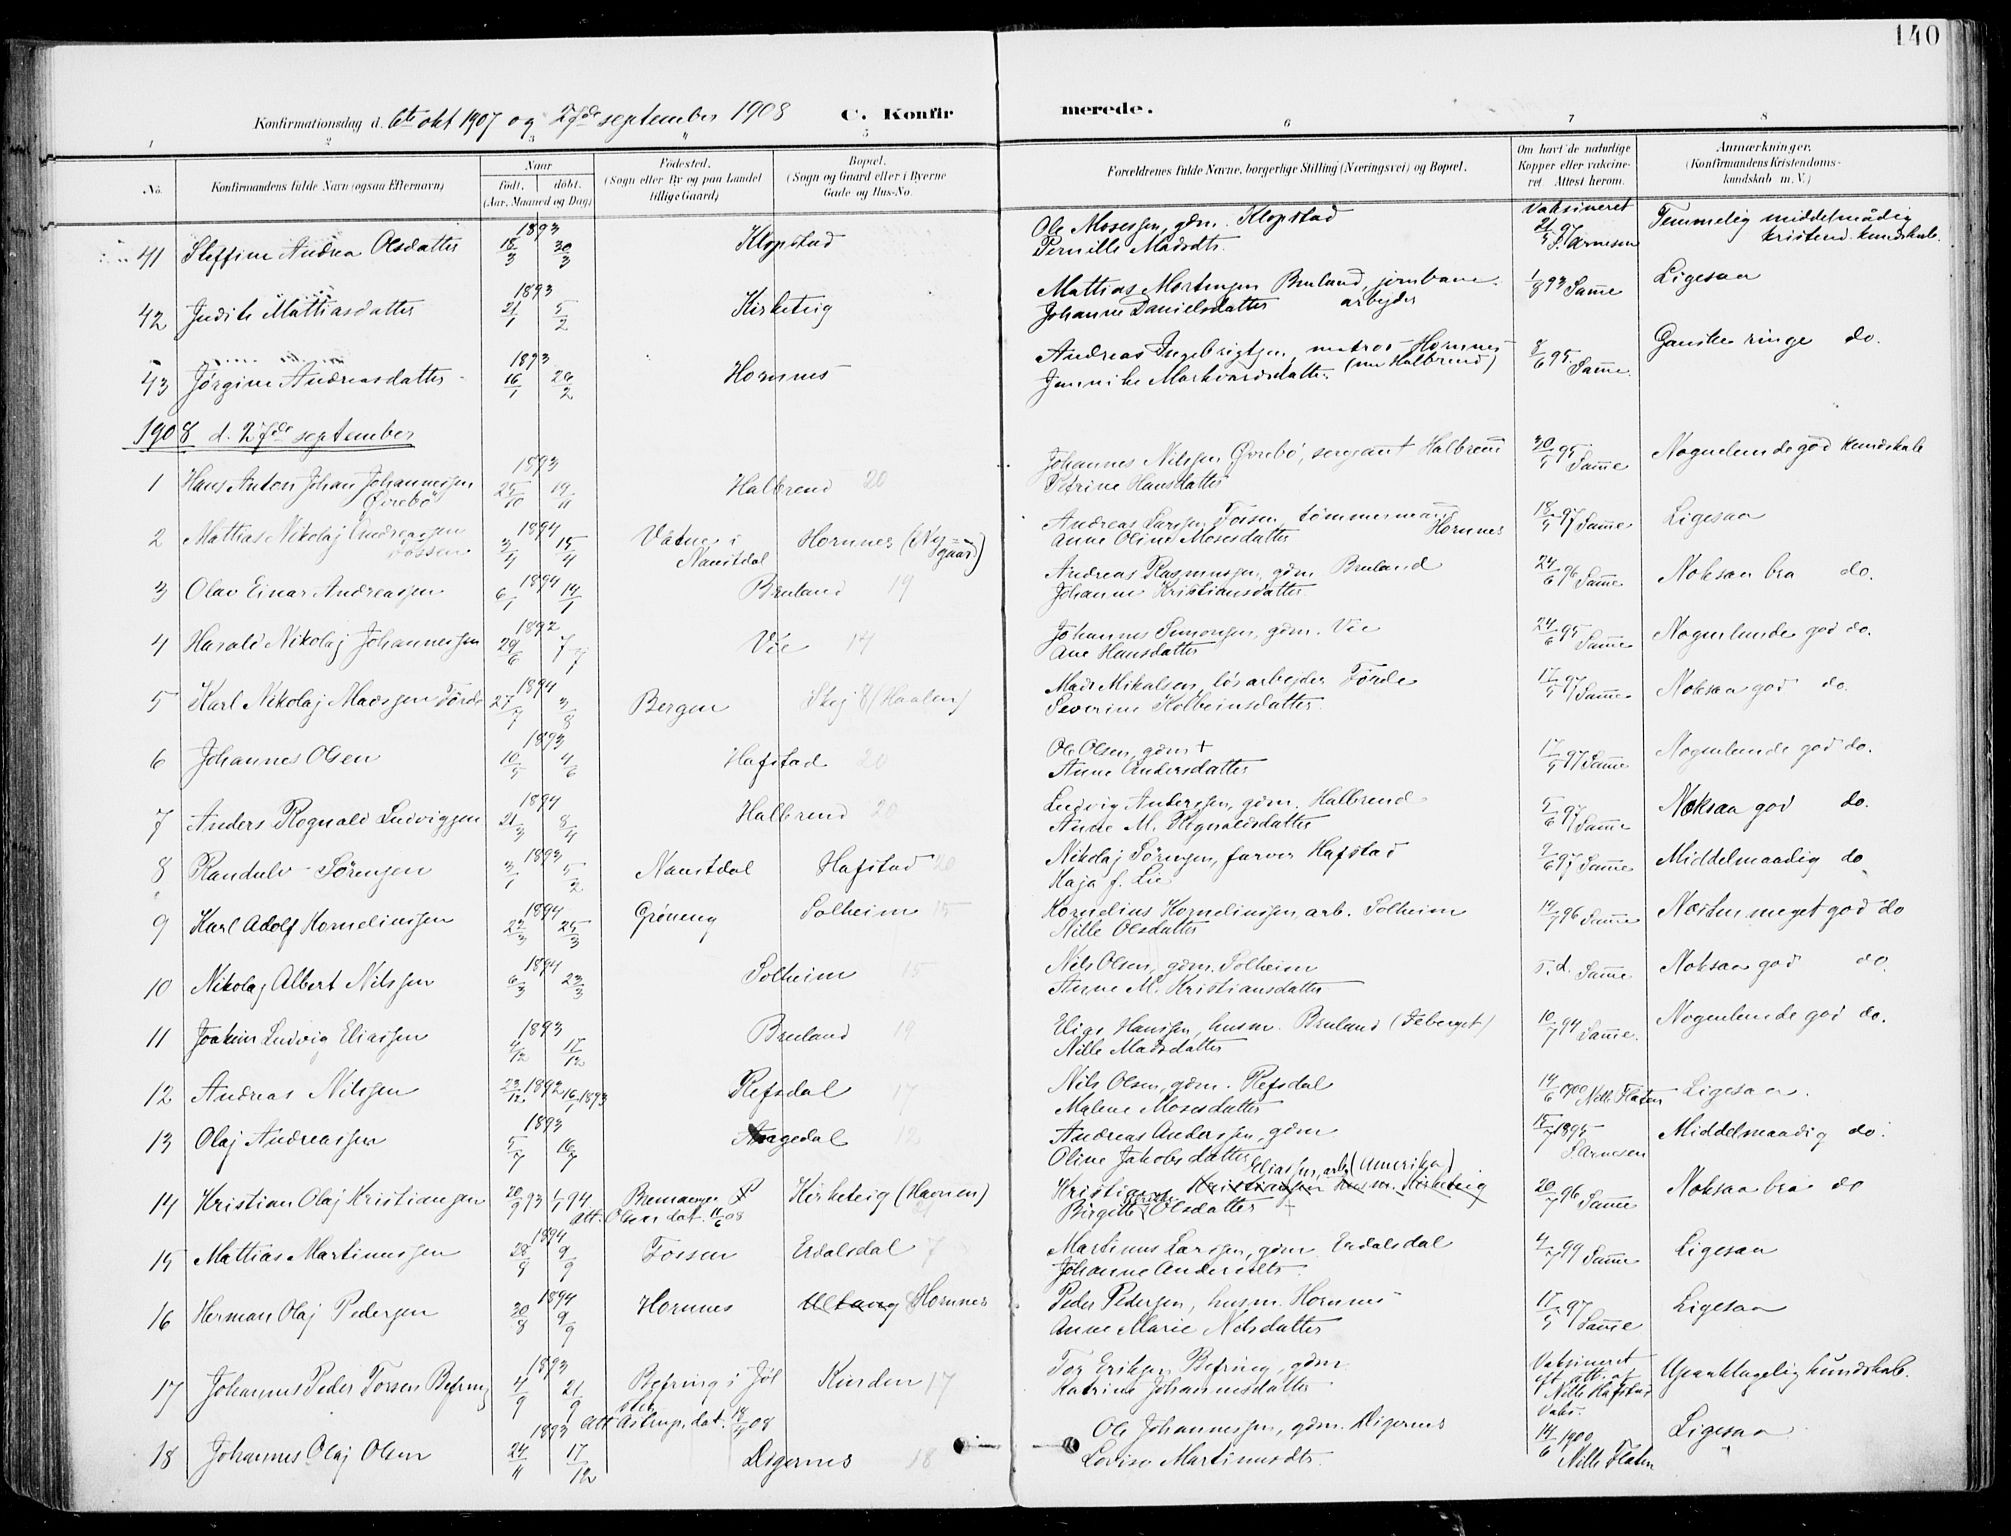 140
Konfirmationsdag d. 6te okt 1907 og 27de september 1908 C. Konfirmerede.
1 2 3 4 5 6 7 8
No. Konfirmandens fulde Navn (ogsaa Efternavn) Naar født, døbt. (Aar, Maaned og Dag) Fødested. (Sogn eller By og paa Landet tillige Gaard) Bopæl. (Sogn og Gaard eller i Byerne Gade og Hus-No. Forældrenes fulde Navne, borgerlige Stilling (Næringsvei) og Bopæl. Om havt de naturlige Kopper eller vakcineret. Attest herom. Anmærkninger. (Konfirmandens Kristendomskundskab m. V.)
41 Steffine Andrea Olsdatter 1893 18/3 30/3 Klopstad Ole Mosessen, gdm. Klopstad Vaksineret 21/5 97 S. Arnesen Temmelig middelmådig kristend. kundskab.
Pernille Madsdtr.
42 Judite Mattiasdatter 1893 21/1 5/2 Kirketeig Mattias Mortensen Bruland, jernbanearbejder 1/8 93 Samme Ligesaa
Johanne Danielsdatter
43 Jørgine Andreasdatter 1893 16/1 26/2 Hornnes Andreas Ingebrigtsen, matros Hornnes (nu Halbrend) 8/6 95. Samme. Ganske ringe do.
Jannike Markvardsdatter.
1908 d. 27de september
1 Hans Anton Johan Johannessen Øvrebö 1893 25/10 19/11 Halbrend 20 Johannes Nilssen Øvrebö, sergeant Halbrend 30/5 95 Samme Nogenlunde god kundskab
Petrine Hansdatter
2 Mattias Nikolaj Andreassen Fossen 1894 3/4 15/4 Vatne i Naustdal Hornnes (Nygaard) Andreas Larssen Fossen, tømmermann Hornnes 18/5 97 Samme Ligesaa
Anne Oline Mosesdatter
3 Olav Einar Andreassen 1894 6/1 14/1 Bruland 19 Andreas Rasmussen, gdm. Bruland 24/6 96 Samme Noksaa bra do.
Johanne Kristiansdatter
4 Harald Nikolaj Johannessen 1892 29/6 7/7 Vie 14 Johannes Simonsen, gdm. Vie 24/6 95 Samme Nogenlunde god do.
Ane Hansdatter
5 Karl Nikolaj Madssen Førde 1894 27/7 3/8 Bergen Skej 8 (Haalen) Mads Mikalsen, løsarbejder Førde 17/5 97 Samme Noksaa god do.
Severine Kolbeinsdatter.
6 Johannes Olsen 1893 10/5 4/6 Hafstad 20 Ole Olsen, gdm + 17/5 97 Samme Nogenlunde god do.
Anne Andersdatter
7 Anders Rognald Ludvigsen 1894 21/3 8/4 Halbrend 20 Ludvig Anderssen, gdm. Halbrend 5/6 97 Samme Noksaa god do.
Anne M. Rognaldsdatter
8 Randulv Sørensen 1893 3/1 5/2 Naustdal Hafstad 20 Nikolaj Sørensen, farver Hafstad 2/6 97 Samme Middelmaadig do
Kaja f. Lie
9 Karl Adolf Kornelinssen 1894 22/3 25/3 Grøneng Solheim 15 Kornelius Kornelinssen, arb. Solheim 14/7 96 Samme Næsten meget god do
Nille Olsdatter
10 Nikolaj Albert Nilssen 1894 6/3 23/3 Solheim 15 Nils Olsen, gdm. Solheim s. d. Samme Noksaa god do.
Anne M. Kristiansdatter
11 Joakim Ludvig Eliassen 1893 4/12 17/12 Bruland 19 Elias Hanssen, husm. Bruland (Feberget) 10/7 94 Samme. Nogenlunde god do.
Nille Madsdatter
12 Andreas Nilssen 23/12 1892 16/1 1893 Refsdal 17 Nils Olsen, gdm. Refsdal 14/6 1900 Nille Flaten Ligesaa.
Malene Mosesdatter
13 Olaj Andreassen 1893 5/7 16/7 Angedal 12 Andreas Anderssen, gdm 15/7 1895 S. Arnesen Middelmaadig do.
Oline Jakobsdatter
14 Kristian Olaj Kristianssen 20/9 93 1/1 94 Kirketeig (Havnen) Kristian Eliassen, arb. (Amerika) Kristianssen husm. Kirketeig 20/7 96 Samme Noksaa bra do
Att. Olsen dat. 11/6 08 Birgitte Olsdatter +
15 Mattias Martinussen 1894 28/8 9/9 Fossen Erdalsdal 7 Martinus Larssen, gdm Erdalsdal 4/7 99 Samme Ligesaa
Johanne Andersdtr.
16 Herman Olaj Pedersen 1894 30/8 9/9 Hornnes Hornnes Peder Pedersen, husm. Hornnes 17/5 97 Samme Ligesaa
Anne Marie Nilsdatter
17 Johannes Peder Torssen Befring 1893 4/9 21/9 Befring i Jølster Kinden 17 Tor Eriksen Befring, gdm. Vaksineret eft. att. af Nille Hafstad Upaaklagelig kundskab.
Att. Astrup, dat. 14/9 08 Katrine Johannesdatter
18 Johannes Olaj Olsen 1893 24/11 17/12 Digernes 18 Ole Johannessen, gdm. Digernes Vaks. 14/6 1900 Nille Flaten Ligesaa
Lovise Martinusdtr.